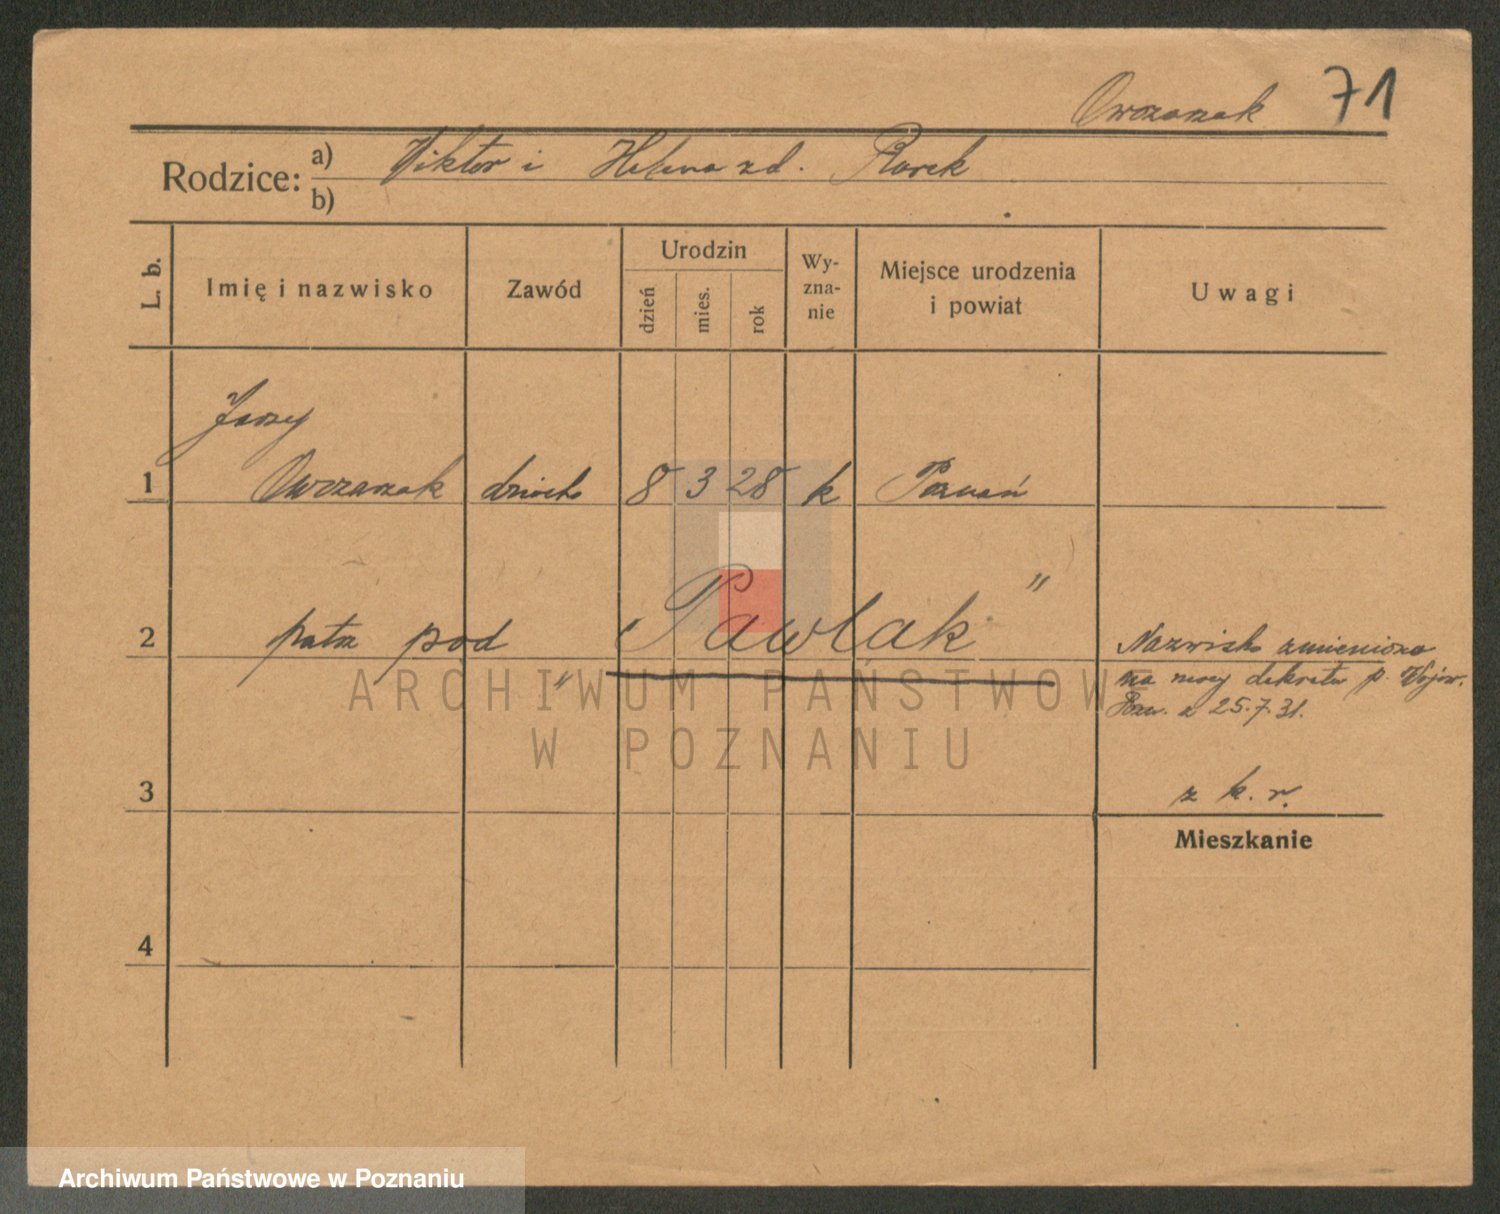 Owczarzak 71
Rodzice: a) Wiktor i Helena zd.
b)
L. b.
Imię i nazwisko
Zawód
Urodzin
dzień
mies.
rok
Wy-
zna-
nie
Miejsce urodzenia
i powiat
Uwagi
Jerzy
1 Owczarzak dziecko 8 3 28 k Poznań
2 patrz pod „Pawlak"
Nazwisko zmieniono
na mocy dekretu p. Wojew.
Pozn. z 25.7.31.
ARCHIWUM PAŃSTWOWE
W POZNANIU
3
z k. r.
Mieszkanie
4
Archiwum Państwowe w Poznaniu